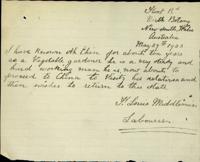 North Botany
New South Wales
Australia
May 29th 1903
I have known Ah Chin for about ten years
as a Vegetable gardener he is a very steady and
hard working man he is now about to
proceed to China to Visit his relatives and
then wishes to return to this State
Labourer